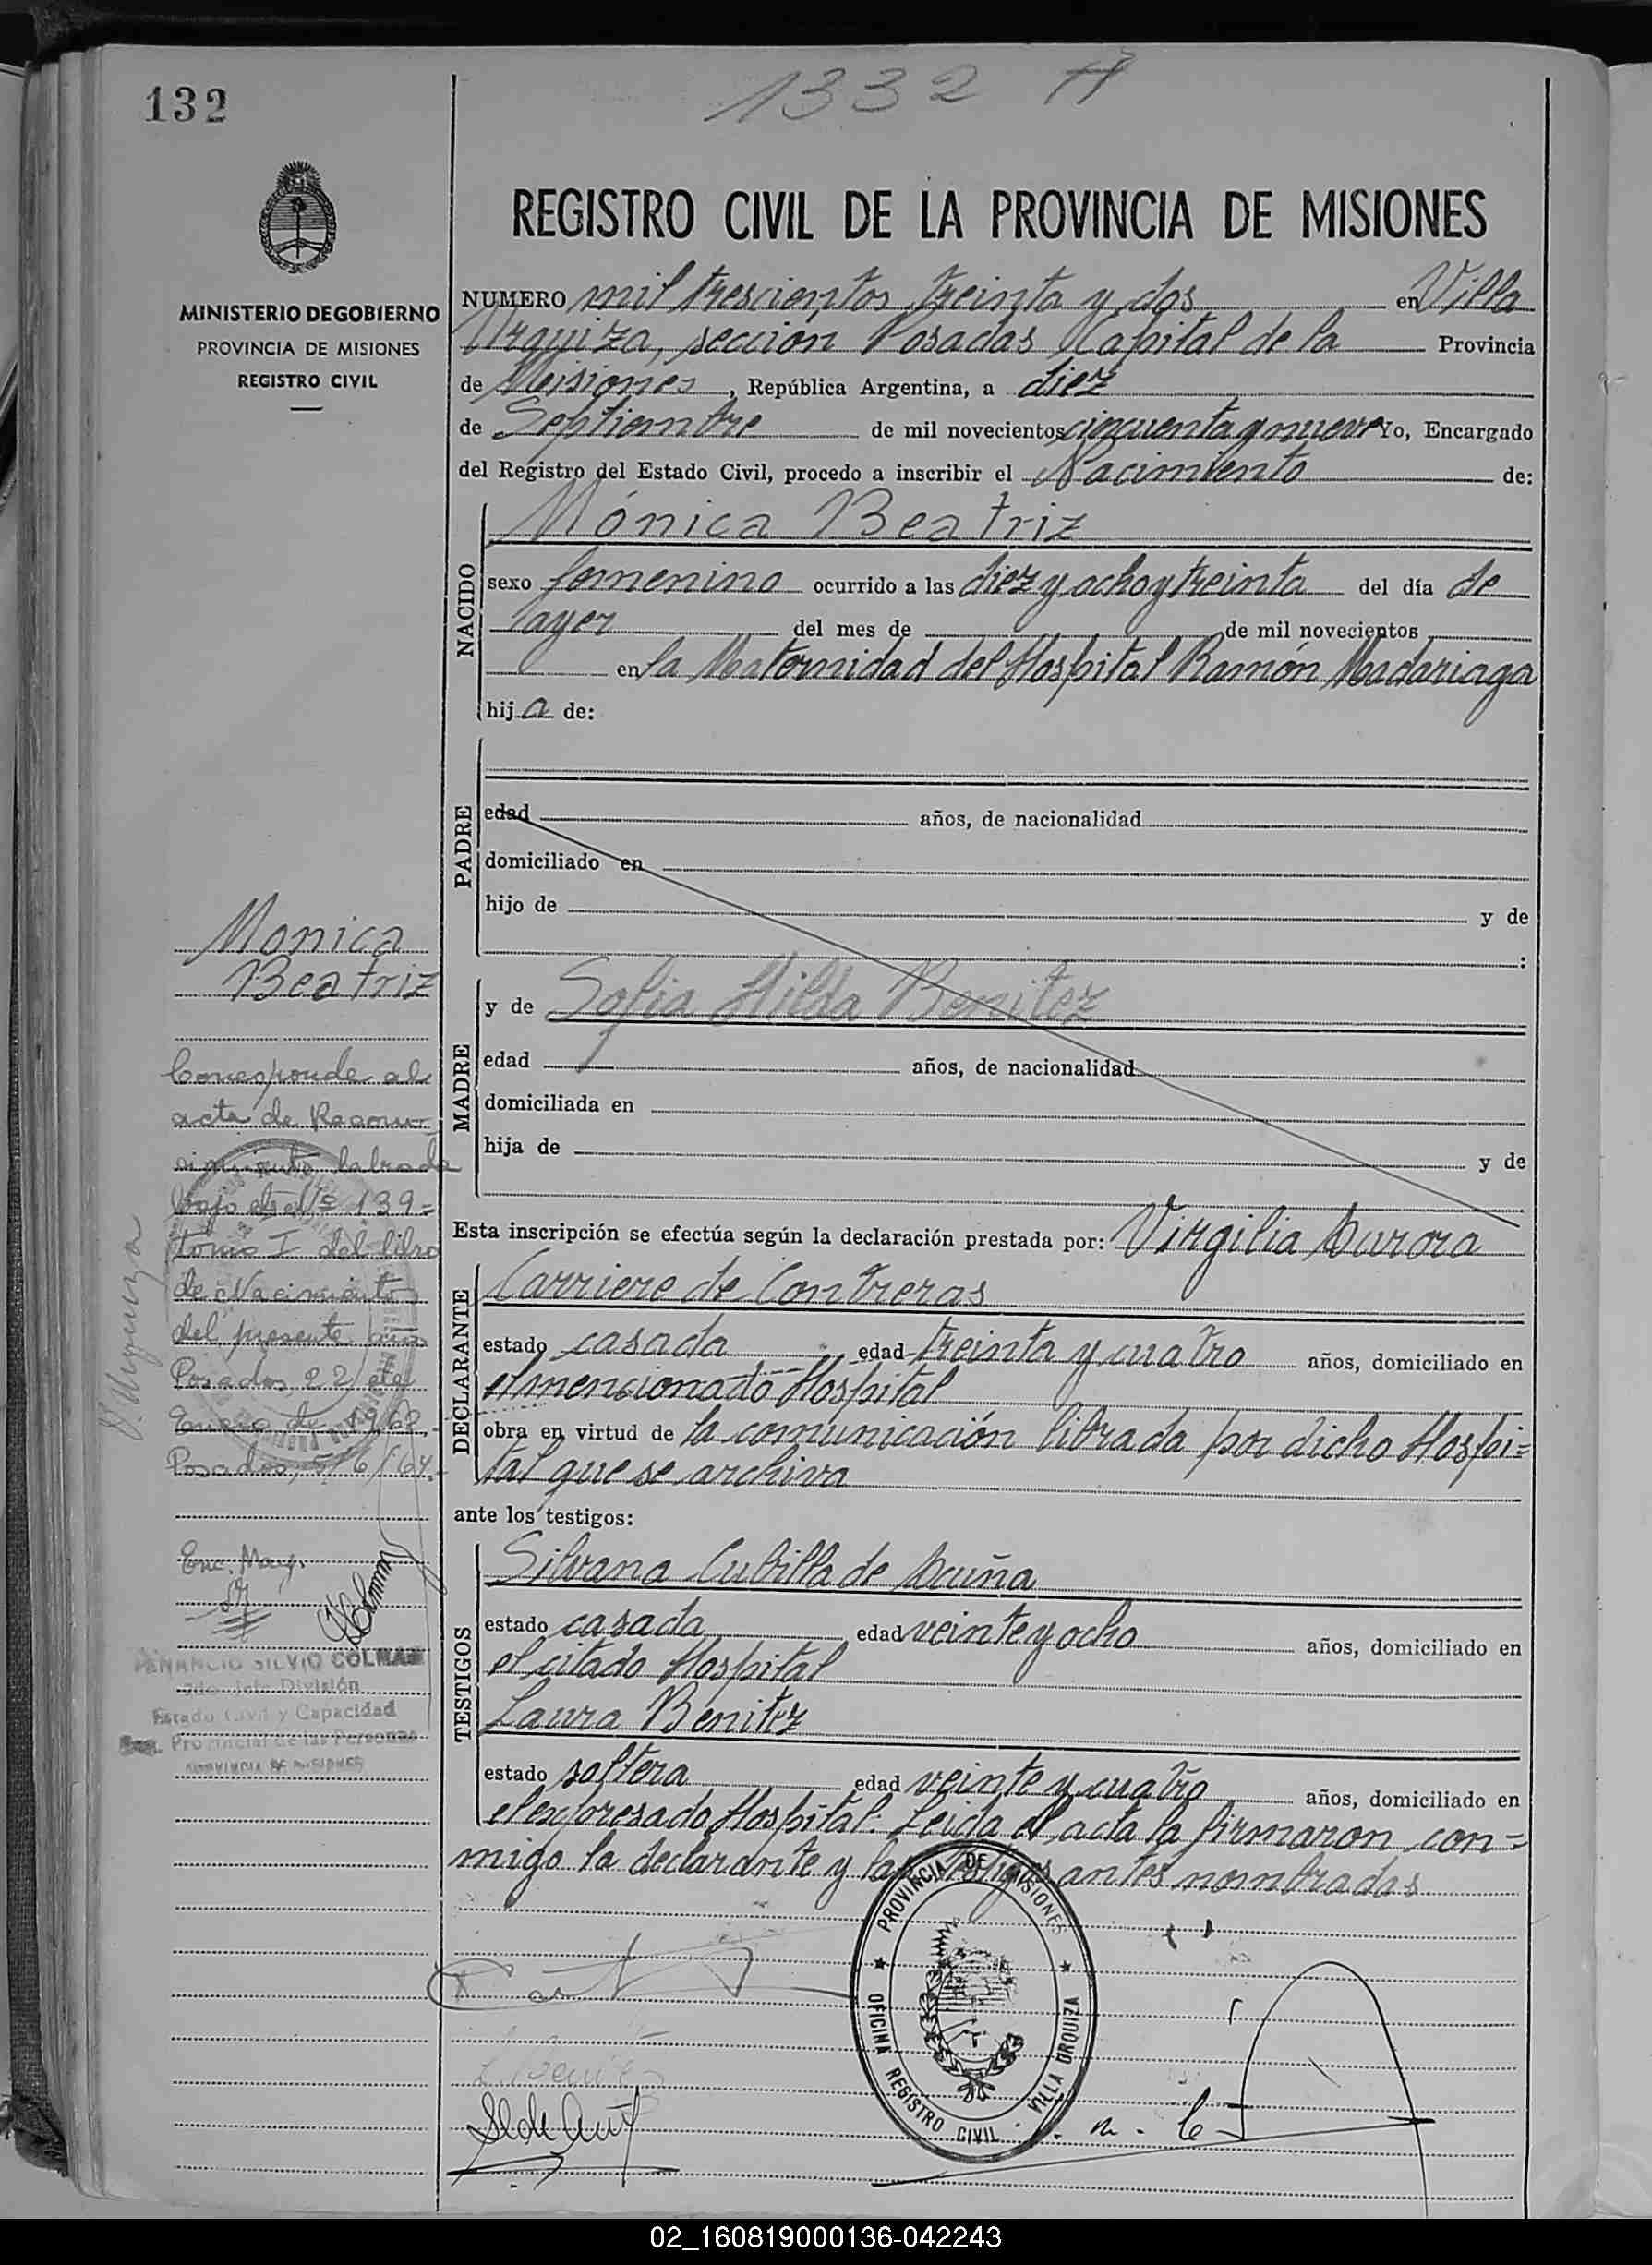 132
1332 A
REGISTRO CIVIL DE LA PROVINCIA DE MISIONES
MINISTERIO DE GOBIERNO
PROVINCIA DE MISIONES
REGISTRO CIVIL
NUMERO mil trescientos treinta y dos en Villa
Urquiza, sección Posadas Capital de la Provincia
de Misiones, República Argentina, a diez
de Septiembre de mil novecientos cincuenta y nueve Yo, Encargado
del Registro del Estado Civil, procedo a inscribir el Nacimiento de:
NACIDO
Mónica Beatriz
sexo femenino ocurrido a las diez y ocho y treinta del día de
ayer del mes de de mil novecientos
en la Maternidad del Hospital Ramón Madariaga
hija de:
PADRE
edad años, de nacionalidad
domiciliado en
hijo de y de
:
MADRE
y de Sofia Hilda Benitez
edad años, de nacionalidad
domiciliada en
hija de y de
Esta inscripción se efectúa según la declaración prestada por: Virgilia Aurora
DECLARANTE
Carriere de Contreras
estado casada edad treinta y cuatro años, domiciliado en
el mencionado Hospital
obra en virtud de la comunicación librada por dicho Hospi=
tal que se archiva
ante los testigos:
TESTIGOS
Silvana Cubilla de Acuña
estado casada edad veinte y ocho años, domiciliado en
el citado Hospital
Laura Benitez
estado soltera edad veinte y cuatro años, domiciliado en
el expresado Hospital. Leida el acta la firmaron con=
migo la declarante y las testigos antes nombradas
Monica
Beatriz
Corresponde al
acta de Recono-
simiento labrada
bajo el Nº 139=
tomo I del libro
de Nacimiento
del presente año
Posadas, 22 de
Enero de 1962.-
Posados, 5/6/64.-
V. Urquiza
Enc. May.
VENANCIO SILVIO COLMAN
2do. Jefe División
Estado Civil y Capacidad
Reg. Provincial de las Personas
PROVINCIA DE MISIONES
PROVINCIA DE MISIONES
OFICINA REGISTRO CIVIL VILLA URQUIZA
L. Benitez
S C de Acuña
02_160819000136-042243